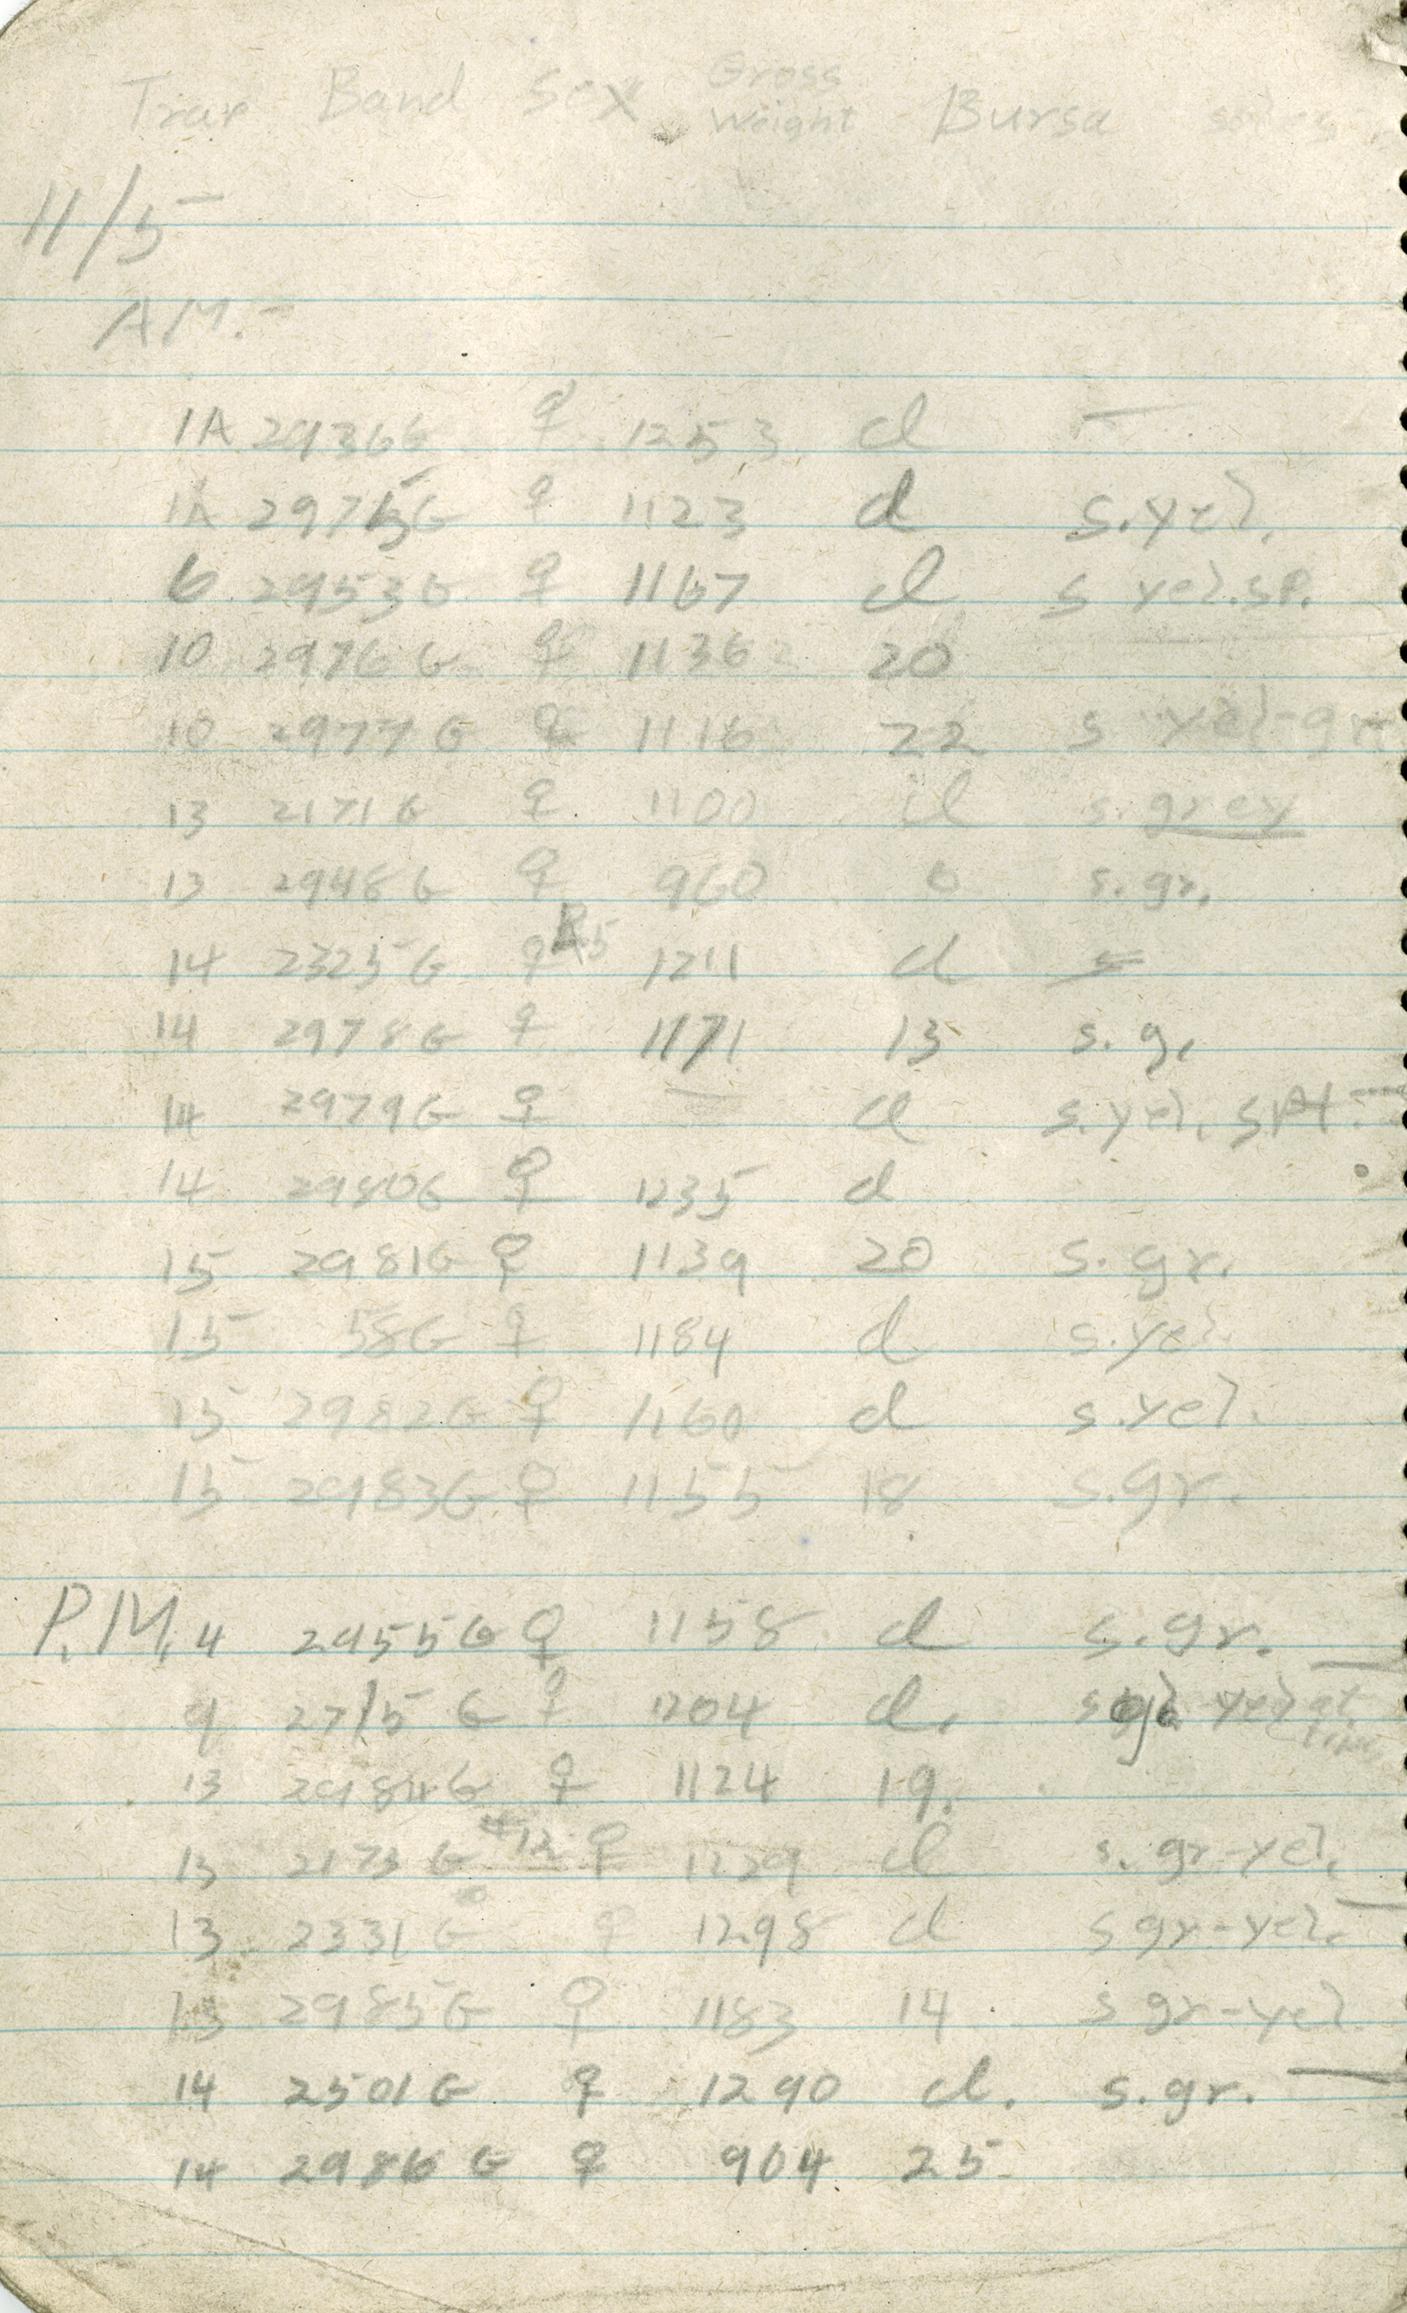 Trap Band Sex Gross Weight Bursa
11/5
A.M.-
1A 2936G ♀ 1253 cl -
1A 2975G ♀ 1123 cl s.yel.
6 2953G ♀ 1167 cl s yel.sp.
10 2976G ♀ 1136 20
10 2977G ♀ 1116 22 s yel-gr
13 2171G ♀ 1100 cl s.grey
13 2948G ♀ 960 6 s.gr.
14 2325G ♀ 1211 cl
14 2978G ♀ 1171 13 s.g.
14 2979G ♀ — cl s.yel.
14 2980G ♀ 1235 cl
15 2981G ♀ 1139 20 s.gr.
15 58G ♀ 1184 cl s.yel.
15 2982G ♀ 1160 cl s.yel.
15 2983G ♀ 1155 18 s.gr.
P.M. 4 2955G ♀ 1158 cl s.gr.
9 2715G ♀ 1204 cl.
13 2984G ♀ 1124 19.
13 2173G ♀ 1229 cl s.gr-yel.
13 2331G ♀ 1298 cl s gr-yel.
13 2985G ♀ 1183 14 s gr-yel.
14 2501G ♀ 1290 cl. s.gr. —
14 2986G ♀ 904 25